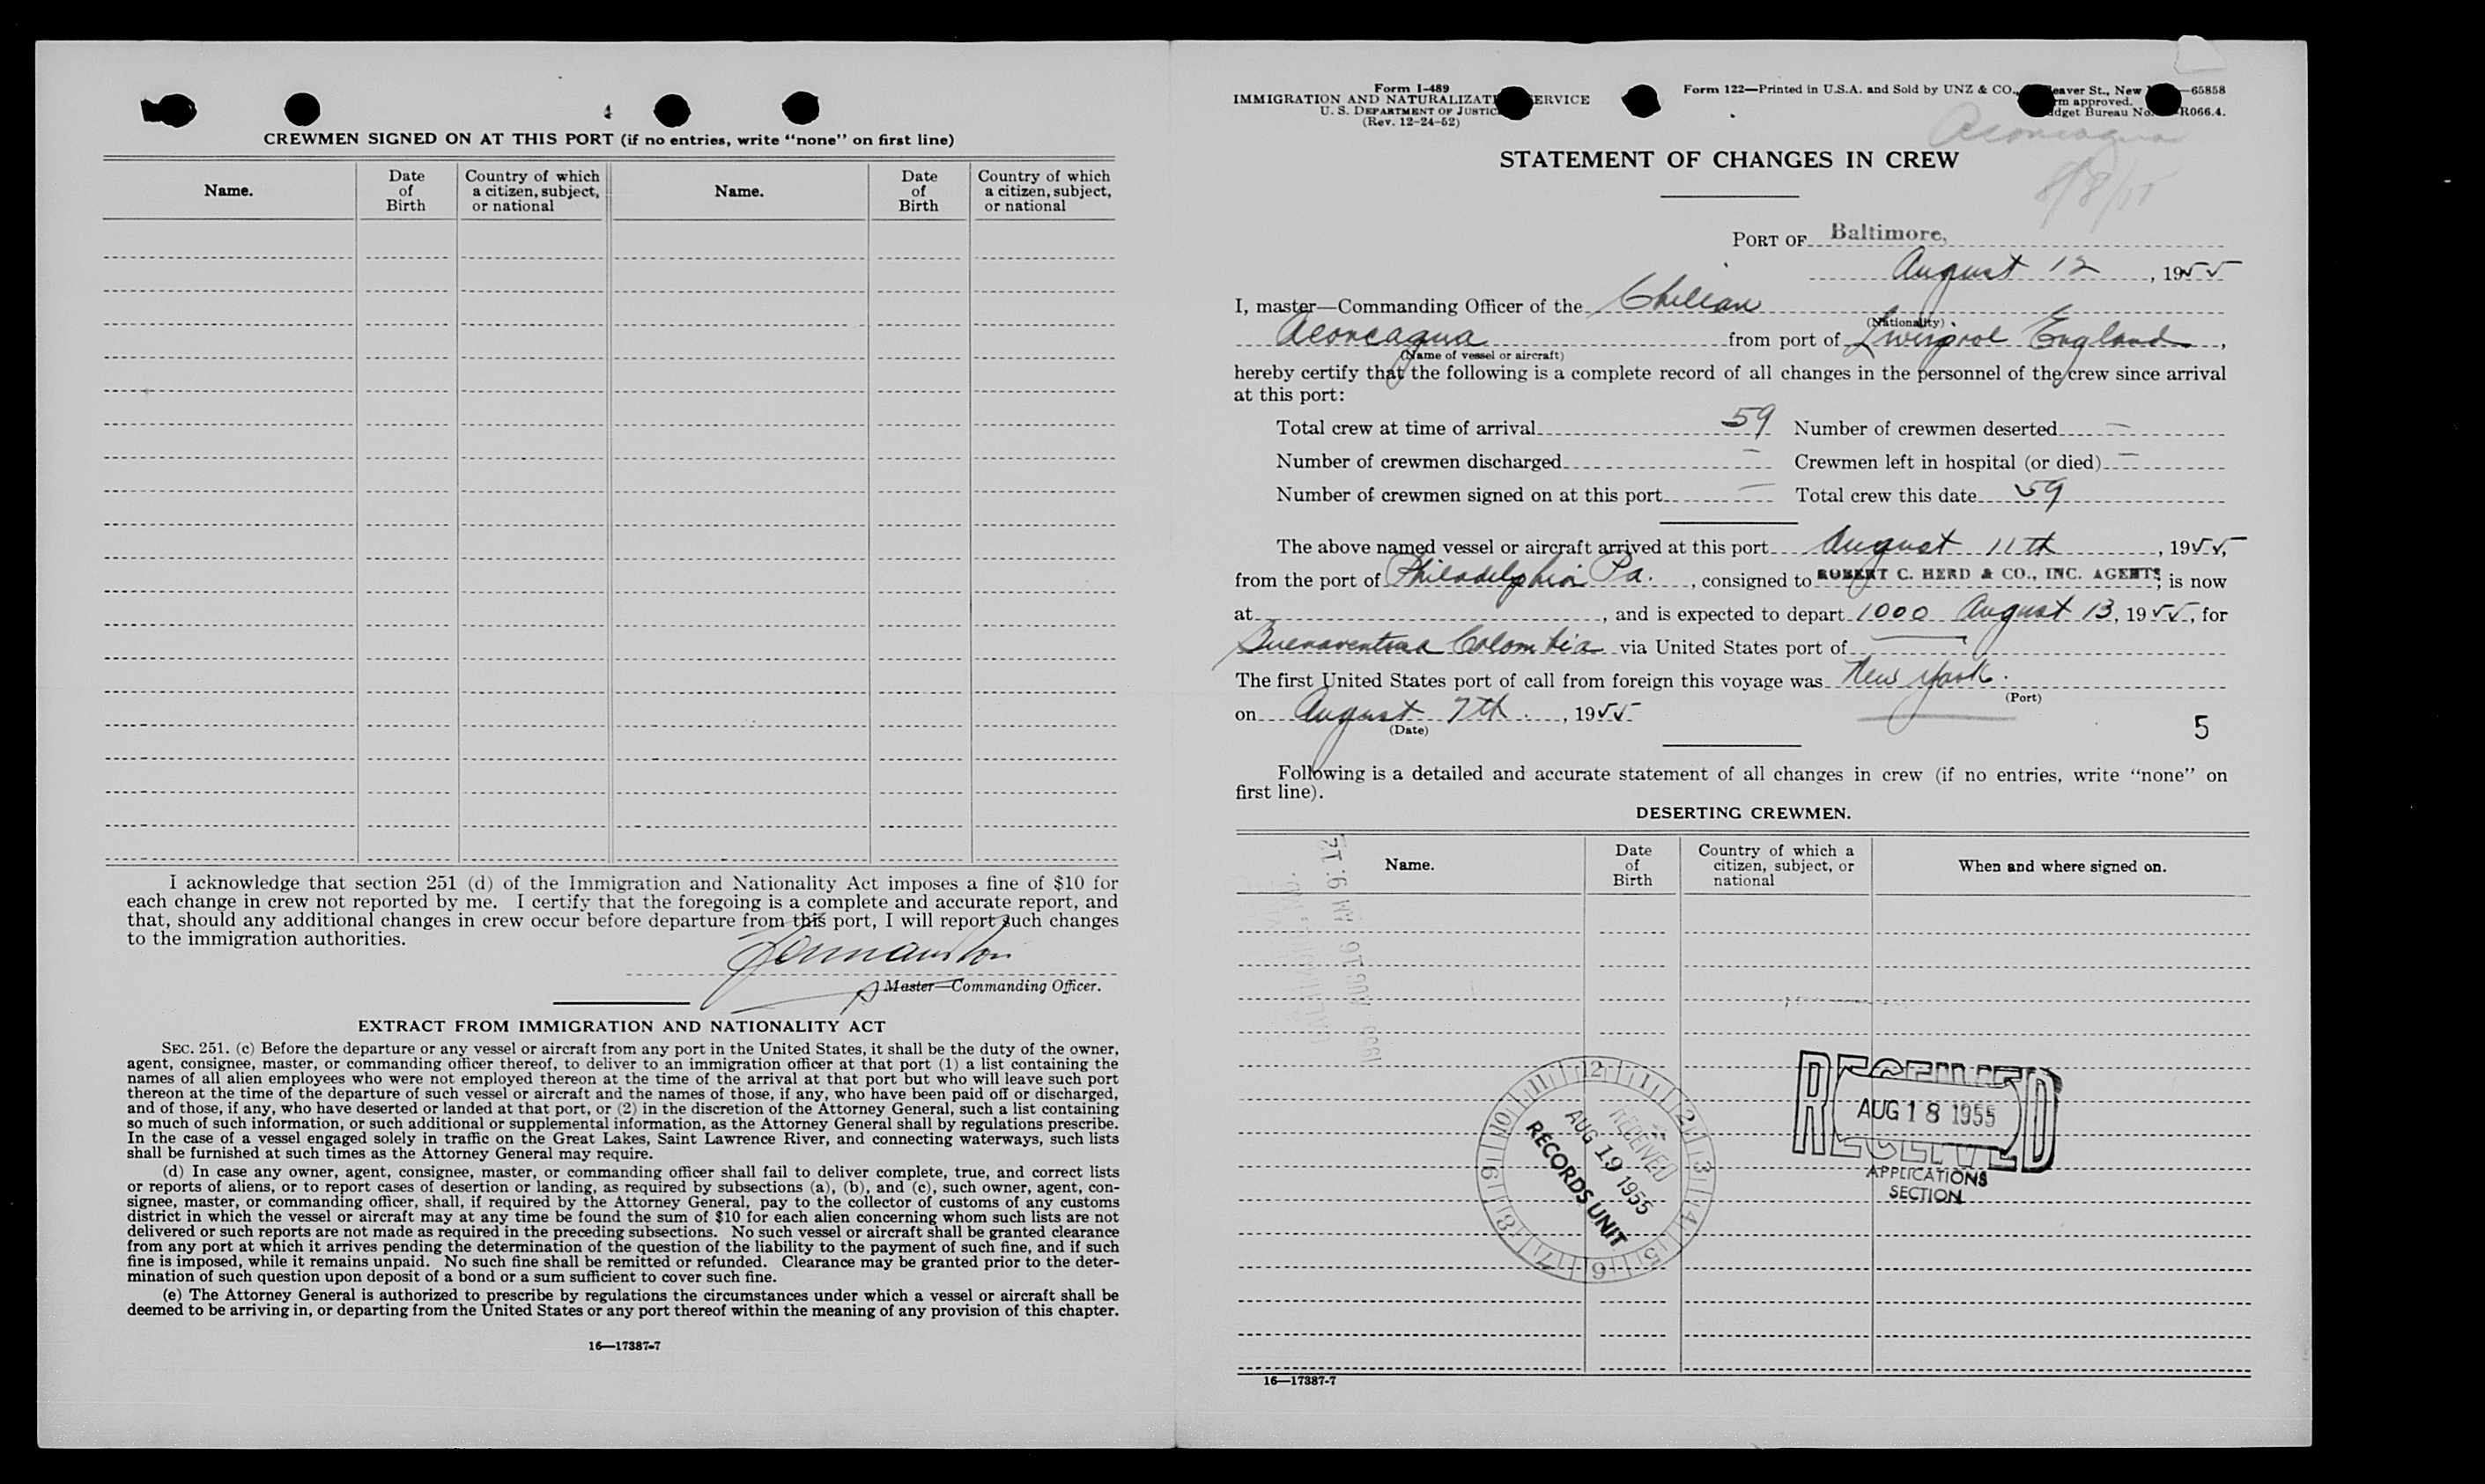 4
CREWMEN SIGNED ON AT THIS PORT (if no entries, write "none" on first line)
Name.
Date
of
Birth
Country of which
a citizen, subject,
or national
Name.
Date
of
Birth
Country of which
a citizen, subject,
or national
I acknowledge that section 251 (d) of the Immigration and Nationality Act imposes a fine of $10 for
each change in crew not reported by me. I certify that the foregoing is a complete and accurate report, and
that, should any additional changes in crew occur before departure from this port, I will report such changes
to the immigration authorities.
Master—Commanding Officer.
EXTRACT FROM IMMIGRATION AND NATIONALITY ACT
SEC. 251. (c) Before the departure or any vessel or aircraft from any port in the United States, it shall be the duty of the owner,
agent, consignee, master, or commanding officer thereof, to deliver to an immigration officer at that port (1) a list containing the
names of all alien employees who were not employed thereon at the time of the arrival at that port but who will leave such port
thereon at the time of the departure of such vessel or aircraft and the names of those, if any, who have been paid off or discharged,
and of those, if any, who have deserted or landed at that port, or (2) in the discretion of the Attorney General, such a list containing
so much of such information, or such additional or supplemental information, as the Attorney General shall by regulations prescribe.
In the case of a vessel engaged solely in traffic on the Great Lakes, Saint Lawrence River, and connecting waterways, such lists
shall be furnished at such times as the Attorney General may require.
(d) In case any owner, agent, consignee, master, or commanding officer shall fail to deliver complete, true, and correct lists
or reports of aliens, or to report cases of desertion or landing, as required by subsections (a), (b), and (c), such owner, agent, con-
signee, master, or commanding officer, shall, if required by the Attorney General, pay to the collector of customs of any customs
district in which the vessel or aircraft may at any time be found the sum of $10 for each alien concerning whom such lists are not
delivered or such reports are not made as required in the preceding subsections. No such vessel or aircraft shall be granted clearance
from any port at which it arrives pending the determination of the question of the liability to the payment of such fine, and if such
fine is imposed, while it remains unpaid. No such fine shall be remitted or refunded. Clearance may be granted prior to the deter-
mination of such question upon deposit of a bond or a sum sufficient to cover such fine.
(e) The Attorney General is authorized to prescribe by regulations the circumstances under which a vessel or aircraft shall be
deemed to be arriving in, or departing from the United States or any port thereof within the meaning of any provision of this chapter.
16—17387-7
Form I-489
IMMIGRATION AND NATURALIZATI ERVICE
U. S. DEPARTMENT OF JUSTIC
(Rev. 12-24-52)
Form 122—Printed in U.S.A. and Sold by UNZ & CO., eaver St., New —65858
rm approved.
dget Bureau No. R066.4.
Aconcagua
8/8/55
STATEMENT OF CHANGES IN CREW
PORT OF Baltimore,
August 12, 1955
I, master—Commanding Officer of the Chilean
(Nationality)
Aconcagua from port of Liverpool England,
(Name of vessel or aircraft)
hereby certify that the following is a complete record of all changes in the personnel of the crew since arrival
at this port:
Total crew at time of arrival 59 Number of crewmen deserted —
Number of crewmen discharged — Crewmen left in hospital (or died) —
Number of crewmen signed on at this port — Total crew this date 59
The above named vessel or aircraft arrived at this port August 11th, 1955,
from the port of Philadelphia Pa., consigned to ROBERT C. HERD & CO., INC. AGENTS; is now
at , and is expected to depart 1000 August 13, 1955, for
Buenaventura Colombia via United States port of —
The first United States port of call from foreign this voyage was New York.
(Port)
on August 7th, 1955
(Date)
5
Following is a detailed and accurate statement of all changes in crew (if no entries, write "none" on
first line).
DESERTING CREWMEN.
Name.
Date
of
Birth
Country of which a
citizen, subject, or
national
When and where signed on.
1955 AUG 16 AM 9:12
12 1 2 3 4 5 6 7 8 9 10 11
RECEIVED
AUG 19 1955
RECORDS UNIT
RECEIVED
AUG 18 1955
RECEIVED
APPLICATIONS
SECTION
16—17387-7